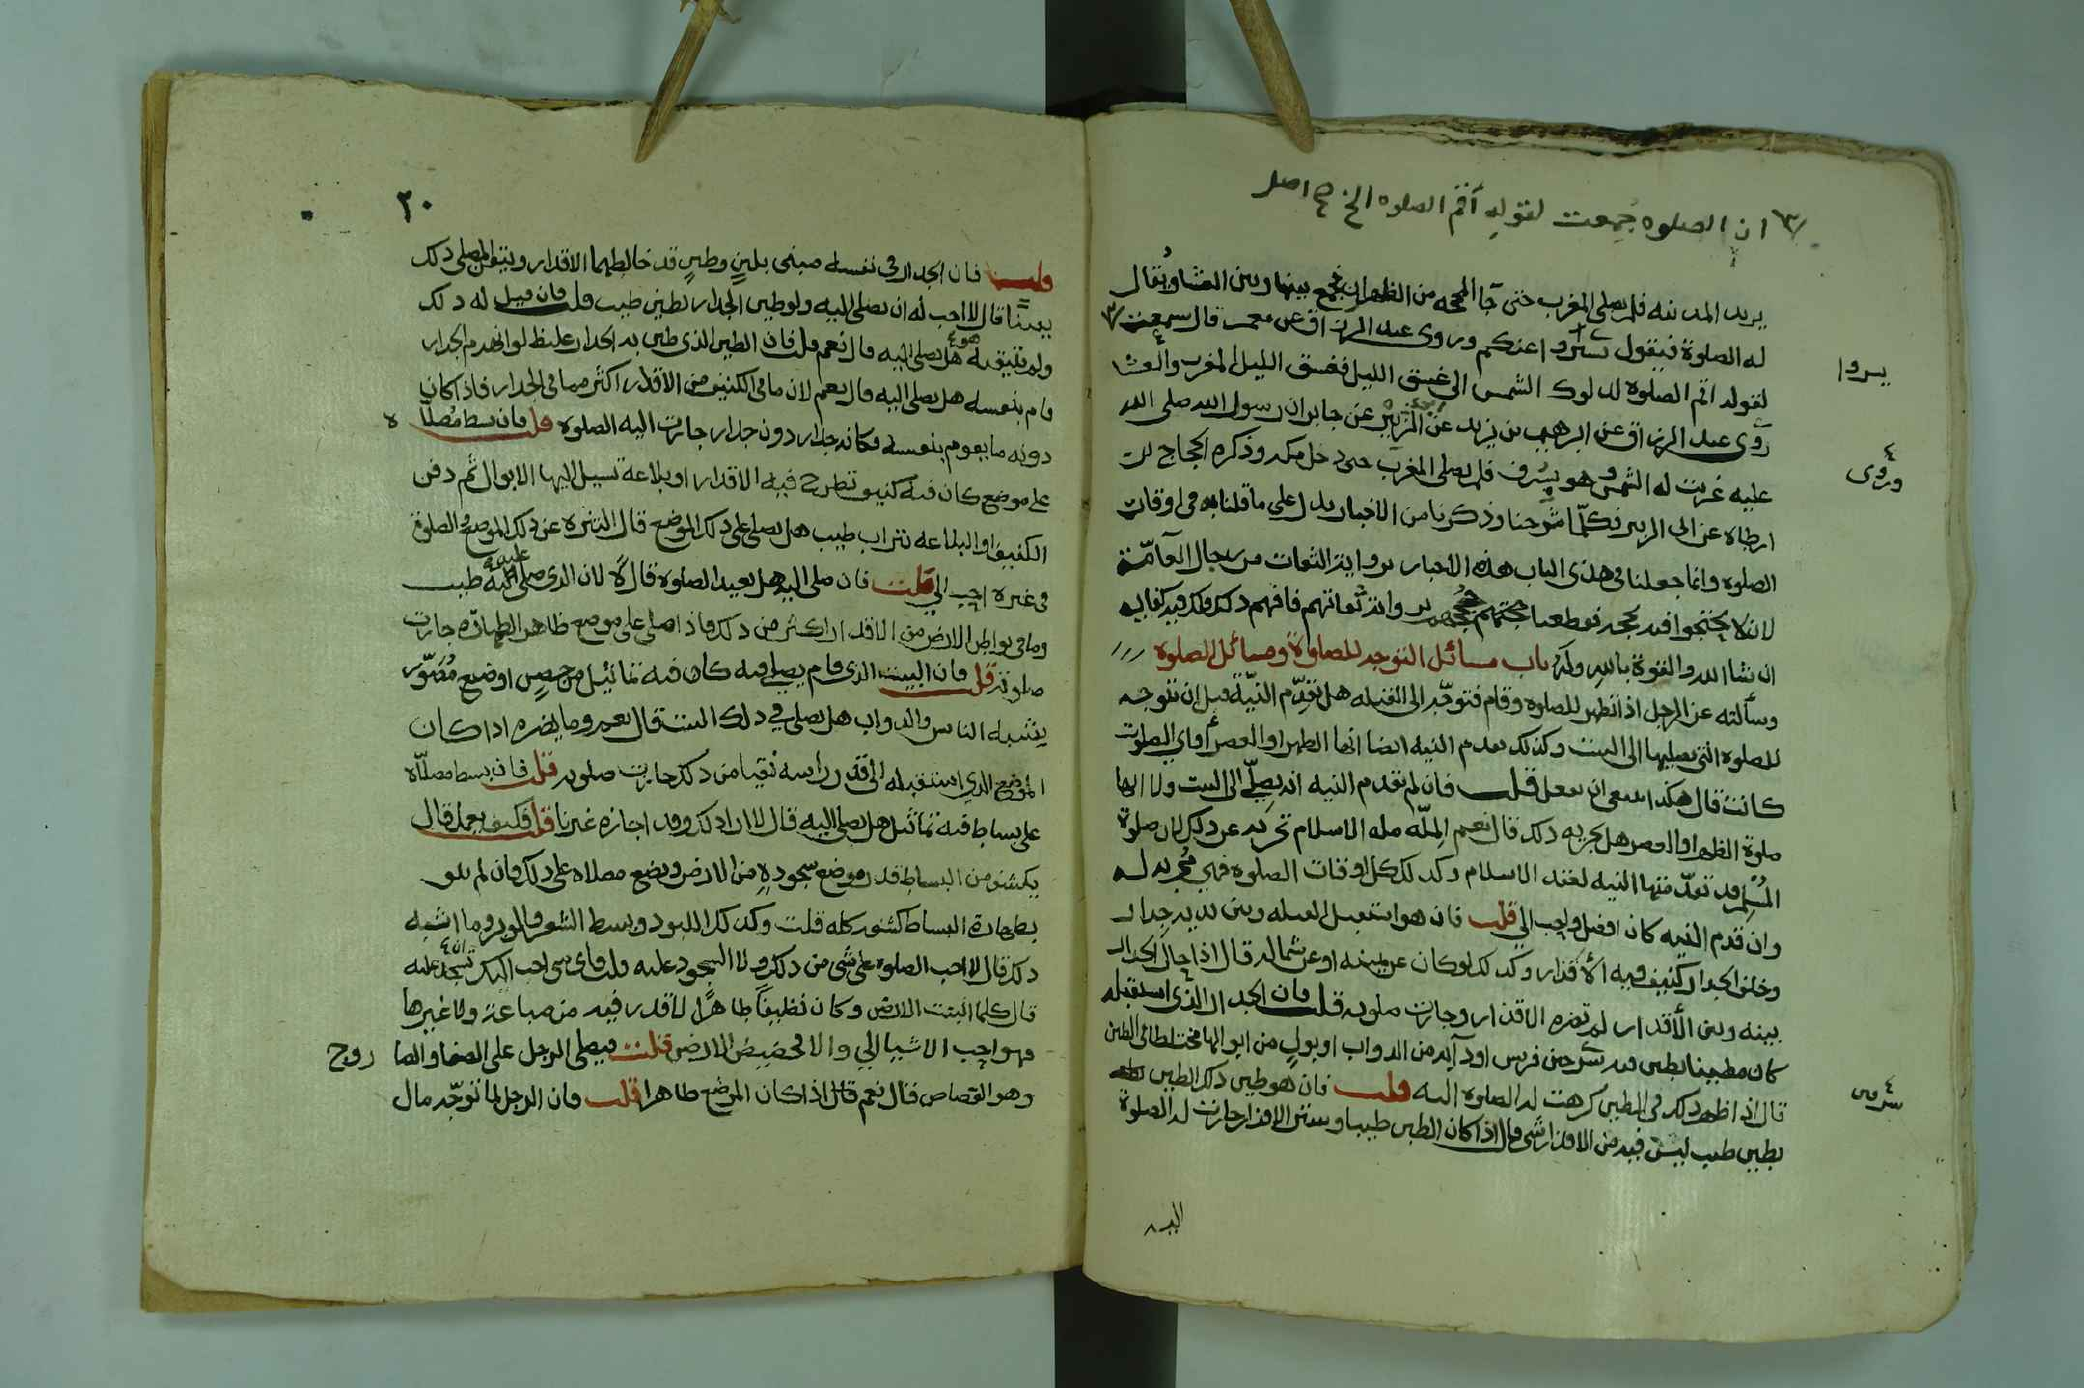 ان الصلوه جمعت لقوله أقم الصلوه الخ صح اصل
يريد المدينه فلم يصلي المغرب حتى جا المحجه من الظهران فجمع بينها وبين العشا ويقال
له الصلوة فيقول سيروا عنكم وروى عبد الرزاق عن معمر قال سمعت
لقوله اقم الصلوه لدلوك الشمس الى غسق الليل فغسق الليل المغرب والعشا
روى عبد الرزاق عن ابرهيم بن يزيد عن ابي الزبير عن جابر ان رسول الله صلى الله
عليه غربت له الشمس وهو بسرف فلم يصلي المغرب حتى دخل مكه وذكره الحجاج بن
ارطاه عن ابي الزبير فكلما شرحنا وذكرنا من الاخبار يدل على ما قلنا به في اوقات
الصلوه وانما جعلنا في هذى الباب هذه الاخبار برواية الثقات من رجال العآمّة
لان لا يحتجوا فيه بحجه فقطعنا حججهم بروايه ثقاتهم فافهم ذلك ففيه كفايه
ان شا الله والقوة بالله وله باب مسائل التوجه للصلوة ومسائل الصلوه
وسألته عن الرجل اذا تطهر للصلوه وقام فتوجّه الى القبله هل تقدّم النيّة قبل ان يتوجه
للصلوه التي يصليها الى البيت وكذلك يقدم النيه ايضا انها الظهر او العصر أو اي الصلوت
كانت قال هكذا ينبغي ان يفعل قلت فان لم يقدم النيه انه يصلّي الى البيت ولا انها
صلوة الظهر او العصر هل يجزيه ذلك قال نعم المِلّه مله الاسلام تجزيه عن ذلك لان صلوة
المُسْلِم قد تقدّمتها النيه لعقد الاسلام وكذلك كل اوقات الصلوه فهي مُجْزيه له
وان قدم النيه كان افضل واحب الي قلت فان هو استقبل القبله وبين يديه جدار
وخلف الجدار كنيف فيه الأقذار وكذلك لو كان عن يمينه او عن شماله قال اذا حال الجدار
بينه وبين الأقذار لم تضره الاقذار وجازت صلوته قلت فان الجدار الذي استقبله
كان مطينا بطين فيه سرجين فرس او دآبه من الدواب او بول من ابوالها مختلطا في الطين
قال اذا ظهر ذلك في الطين كرهت له الصلوه اليه قلت فان هو طين ذلك الطين
بطين طيب ليس فيه من الاقذار شي قال اذا كان الطين طيبا وستر الاقذار جازت له الصلوة
اليه
يروا
وروى
سرقين
٢٠
قلت فان الجدار في نفسه مبني بلبن وطين قد خالطهما الاقذار ويتيقن المصلي ذلك
يقيناً قال لا احب له ان يصلي اليه ولو طين الجدار بطين طيب قلت فان قيل له ذلك
ولم يتيقنه هو هل يصلي اليه قال نعم قلت فان الطين الذي طين به الجدار غليظ لو انهدم الجدار
قام بنفسه هل يصلي اليه قال نعم لان ما في الكنيف من الأقذار اكثر مما في الجدار فاذا كان
دونه ما يقوم بنفسه فكانه جدار دون جدار جازت اليه الصلوه قلت فان بسط مُصلّاه
على موضع كان فيه كنيف تطرح فيه الاقذار او بلاعة تسيل اليها الابوال ثم دفن
الكنيف او البلاعه بتراب طيب هل يصلي على ذلك الموضع قال التنزه عن ذلك الموضع والصلوة
في غيره احب الي قلت فان صلى اليه هل يعيد الصلوه قال لا لان الذي صلى عليه طيب
وما في بواطن الارض من الاقذار اكثر من ذلك فاذا صلى على موضع ظاهر الطهارة جازت
صلوته قلت فان البيت الذي قام يصلي فيه كان فيه تماثيل من جصٍ او صبغ مُصَوّر
يشبه الناس والدواب هل يصلي في ذلك البيت قال نعم وما يضره اذا كان
الموضع الذي استقبله الى قدر راسه نقيا من ذلك جازت صلوته قلت فان بسط مصلّاه
على بساط فيه تماثيل هل يصلي اليه قال لا ارا ذلك وقد اجازه غيرنا قلت فكيف يعمل قال
يكشف من البساط قدر موضع سجوده من الارض ويضع مصلاه على ذلك فان لم
بطهارة البساط كشفه كله قلت وكذلك اللبود وبسط الشعر والوبر وما اشبه
ذلك قال لا احب الصلوه على شي من ذلك ولا السجود عليه قلت فاي شي احب اليك تسجد عليه
قال كلما انبتت الارض وكان نظيفاً طاهرًا لا قذر فيه من صباغة ولا غيرها
فهو احب الاشيا الي والا فحضيض الارض قلت فيصلي الرجل على الصفا والصاروج
وهو القصاص قال نعم قال اذا كان الموضع طاهرا قلت فان الرجل لما توجّه مال